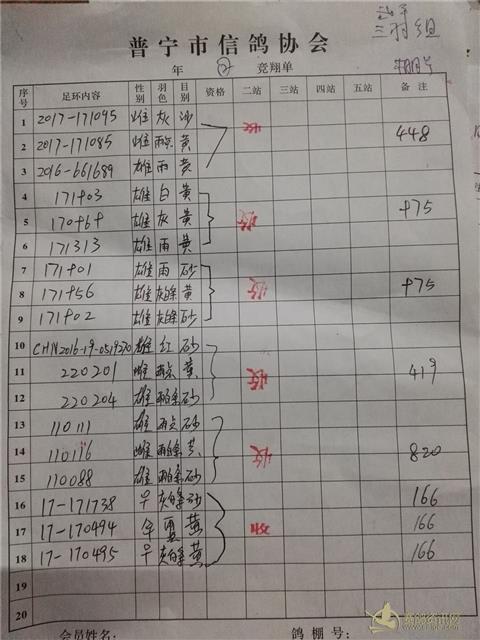 三羽组
普宁市信鸽协会
年 竞翔单
序号 足环内容 性别 羽色 目别 资格 二站 三站 四站 五站 备注
1 2017-171095 雌 灰 沙
2 2017-171085 雌 雨点 黄 448
3 2016-661689 雄 雨 黄
4 171903 雄 白 黄
5 170969 雄 灰 黄 975
6 171313 雄 雨 黄
7 171901 雄 雨 砂
8 171956 雄 灰白条 黄 975
9 171902 雄 灰白条 砂
10 CHN2016-19-0519270 雄 红 砂
11 220201 雌 雨点 黄 419
12 220204 雄 雨白条 砂
13 110111 雄 雨点 砂
14 110116 雌 雨白条 黄 820
15 110088 雄 雨白条 砂
16 17-171738 灰白条 沙 166
17 17-170494 黄 166
18 17-170495 灰白条 黄 166
19
20
会员姓名: 鸽棚号: